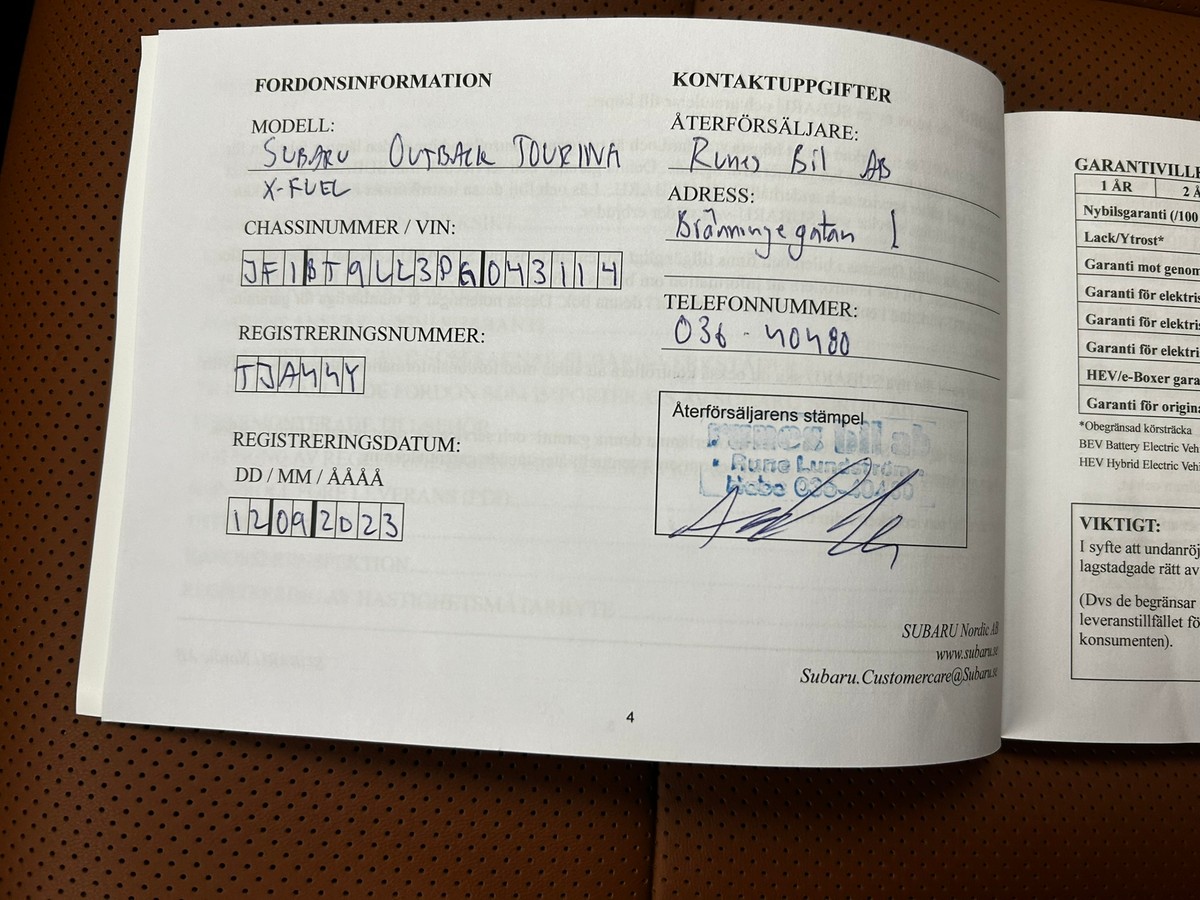 FORDONSINFORMATION
MODELL:
SUBARU OUTBACK TOURING
X-FUEL
CHASSINUMMER / VIN:
JF1BT9LL3PG043114
REGISTRERINGSNUMMER:
TJA44Y
REGISTRERINGSDATUM:
DD / MM / ÅÅÅÅ
12092023
KONTAKTUPPGIFTER
ÅTERFÖRSÄLJARE:
Runes Bil AB
ADRESS:
Bränningegatan 1
TELEFONNUMMER:
036-40480
Återförsäljarens stämpel
runes bil ab
Rune Lundström
SUBARU Nordic AB
www.subaru.se
Subaru.Customercare@Subaru.se
4
GARANTIVILLK
1 ÅR 2 Å
Nybilsgaranti (/100
Lack/Ytrost*
Garanti mot genom
Garanti för elektris
Garanti för elektris
Garanti för elektri
HEV/e-Boxer gara
Garanti för origina
*Obegränsad körsträcka
BEV Battery Electric Veh
HEV Hybrid Electric Vehi
VIKTIGT:
I syfte att undanröj
lagstadgade rätt av
(Dvs de begränsar
leveranstillfället fö
konsumenten).